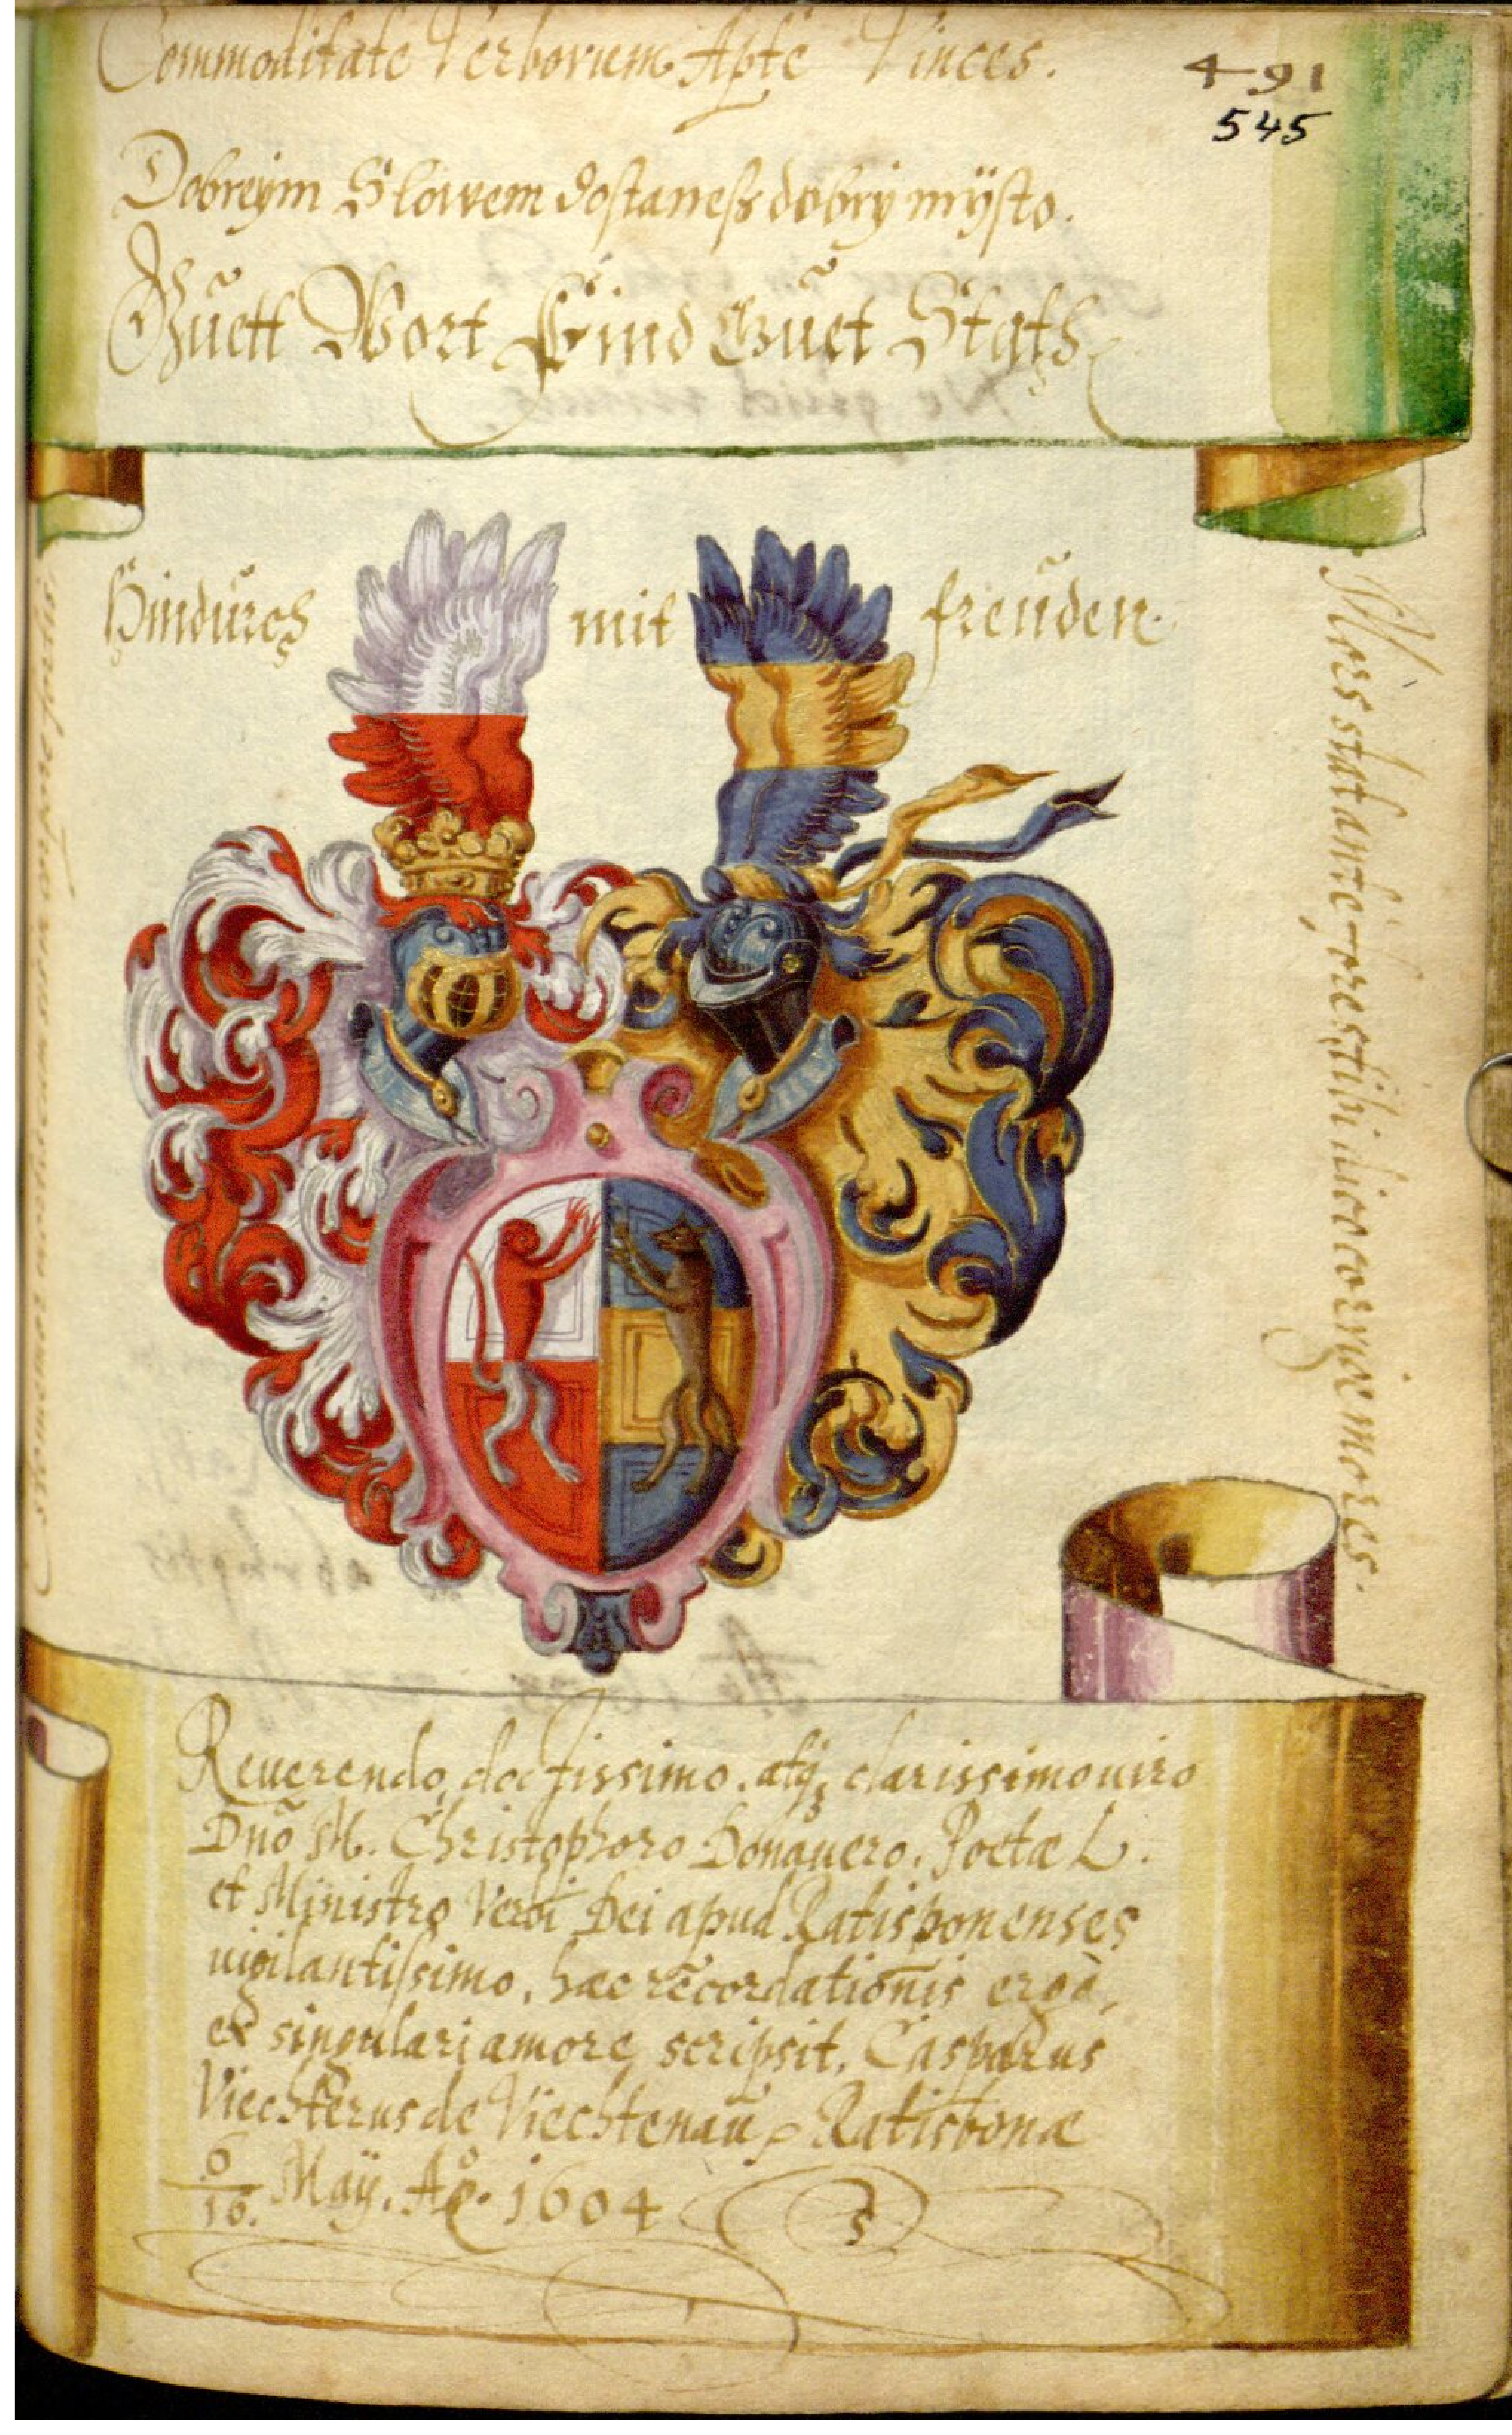 Commoditate Verborum Apte Vinces.
491
545
Dobreym Slowem dostaneß dobrÿ mÿsto.
Guett Wort Find Guet Stath
Hindurch mit freuden.
Mors stat ante fores tibi dico corrige mores.
Reuerendo, doctissimo. atq; clarissimo uiro
Dno M. Christophoro Donauero. Poetæ L.
et Ministro Verbi Dei apud Ratisponenses
uigilantissimo, hæc recordationis ergò,
ex singulari amore scripsit. Casparus
Viechterus de Viechtenau, Ratisbonæ
6/16. Maÿ. Ao. 1604